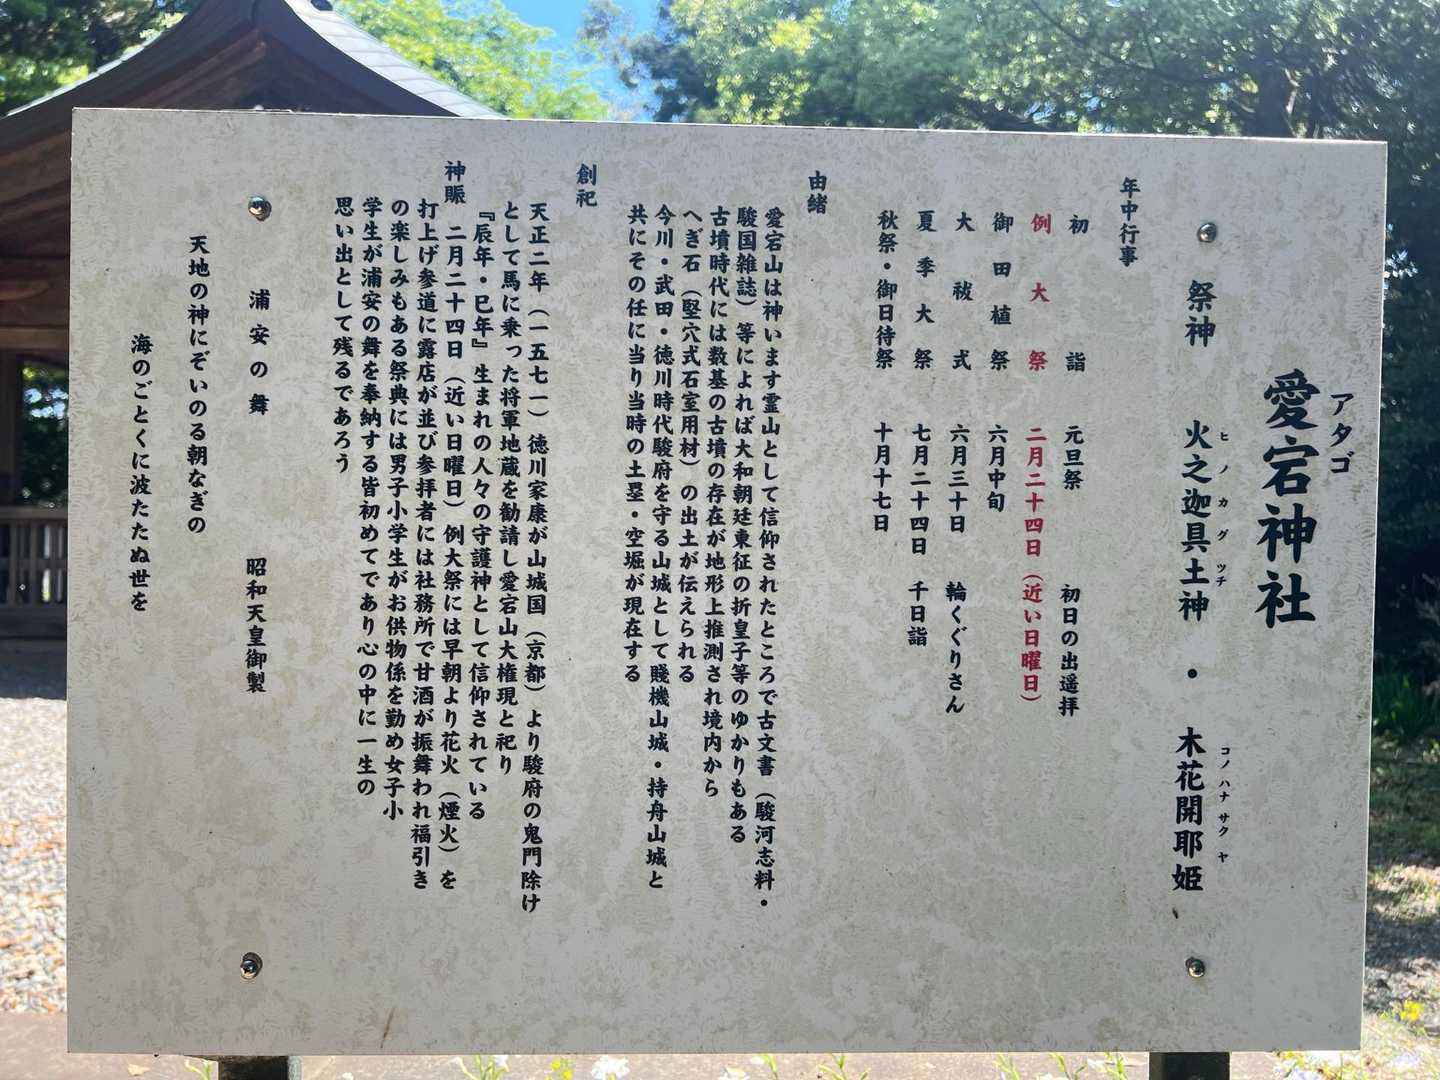 アタゴ
愛宕神社
祭神 火之迦具土神 ・ 木花開耶姫
ヒノカグツチ コノハナサクヤ
年中行事
初詣 元旦祭 初日の出遥拝
例大祭 二月二十四日(近い日曜日)
御田植祭 六月中旬
大祓式 六月三十日 輪くぐりさん
夏季大祭 七月二十四日 千日詣
秋祭・御日待祭 十月十七日
由緒
愛宕山は神います霊山として信仰されたところで古文書(駿河志料・
駿国雑誌)等によれば大和朝廷東征の折皇子等のゆかりもある
古墳時代には数基の古墳の存在が地形上推測され境内から
へぎ石(堅穴式石室用材)の出土が伝えられる
今川・武田・徳川時代駿府を守る山城として賤機山城・持舟山城と
共にその任に当り当時の土塁・空堀が現在する
創祀
天正二年(一五七一)徳川家康が山城国(京都)より駿府の鬼門除け
として馬に乗った将軍地蔵を勧請し愛宕山大権現と祀り
『辰年・巳年』生まれの人々の守護神として信仰されている
神賑 二月二十四日(近い日曜日)例大祭には早朝より花火(煙火)を
打上げ参道に露店が並び参拝者には社務所で甘酒が振舞われ福引き
の楽しみもある祭典には男子小学生がお供物係を勤め女子小
学生が浦安の舞を奉納する皆初めてであり心の中に一生の
思い出として残るであろう
浦安の舞 昭和天皇御製
天地の神にぞいのる朝なぎの
海のごとくに波たたぬ世を